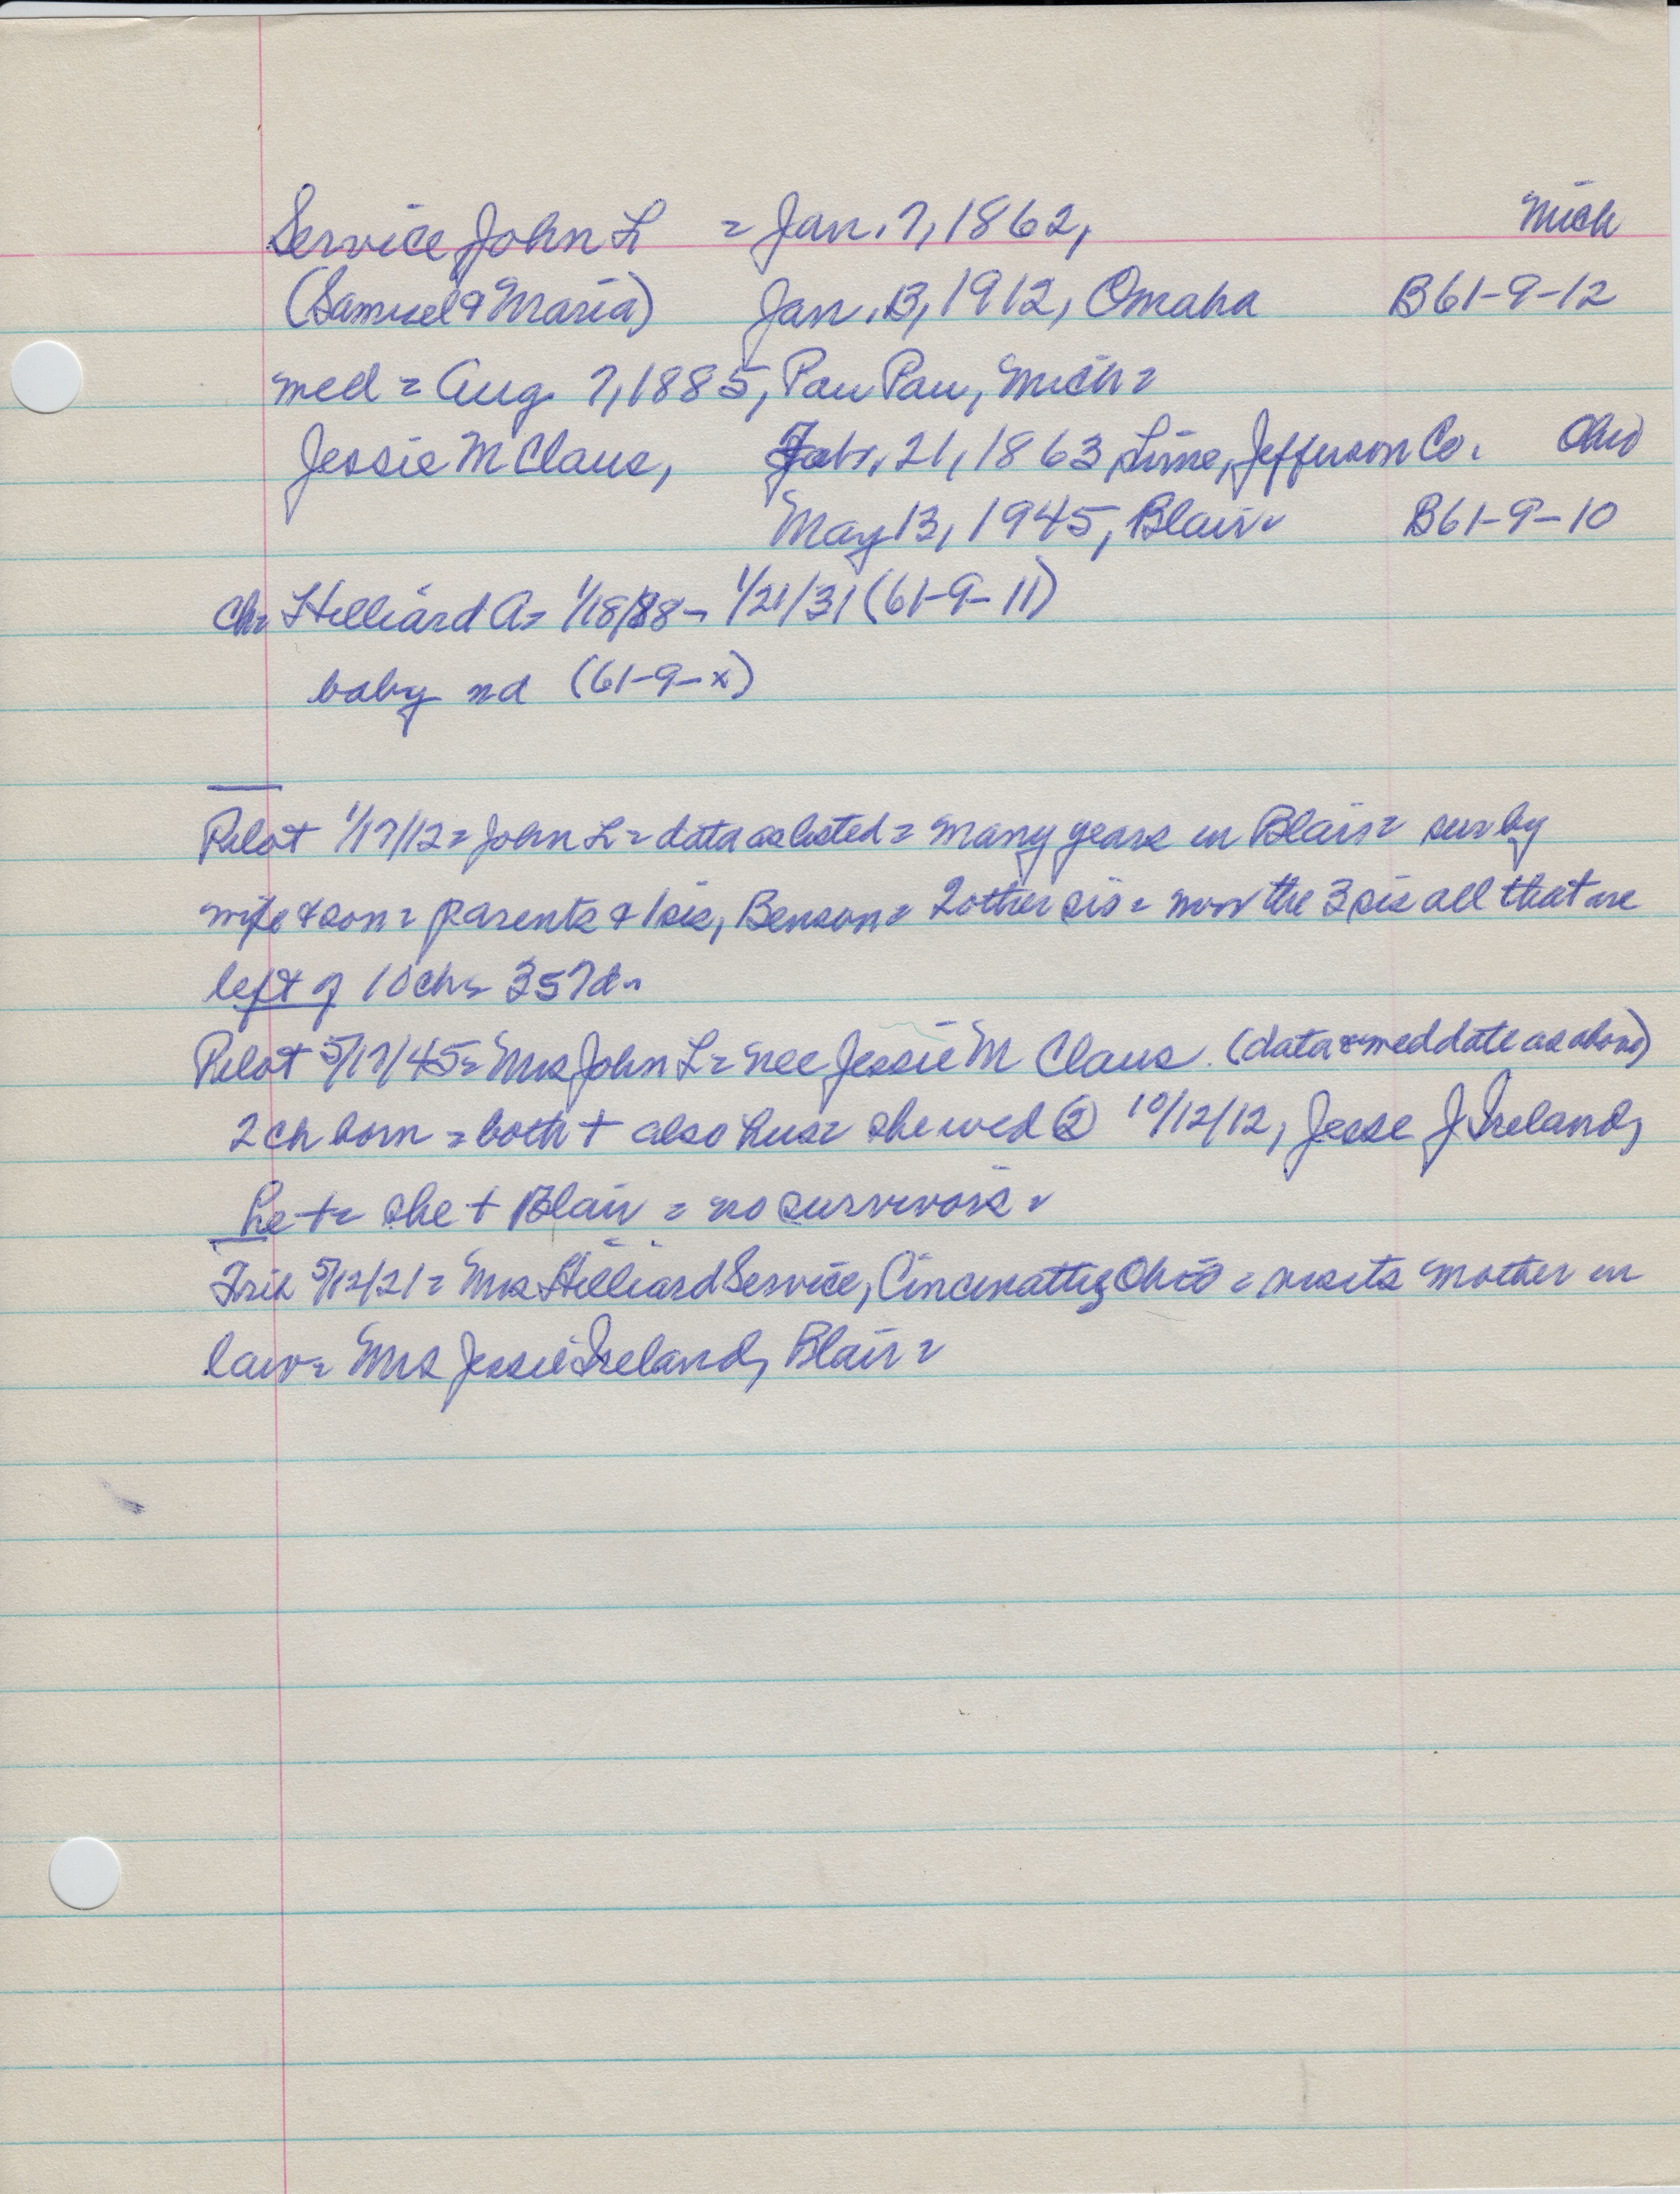 Service John L = Jan. 7, 1862, Mich
(Samuel & Maria) Jan. 13, 1912, Omaha B61-9-12
med = Aug. 7, 1885, Pau Pau, Mich =
Jessie M Claus, Feb. 21, 1863, Lime, Jefferson Co. Ohio
May 13, 1945, Blair = B61-9-10
ch = Hilliard A = 1/18/88 - 1/21/31 (61-9-11)
baby nd (61-9-x)
Pilot 1/17/12 = John L = data as listed = many years in Blair = sur by
wife & son = parents & 1 sis, Benson = 2 other sis = now the 3 sis all that are
left of 10 ch =
Pilot 5/17/45 = Mrs John L = nee Jessie M Claus. (data & med date as above)
2 ch born = both + also hus = she wed ② 10/12/12, Jesse J Ireland,
he + = she + Blair = no survivors =
5/12/21 = Mrs Hilliard Service, Cincinatti, Ohio = visits mother in
law = Mrs Jessie Ireland, Blair =